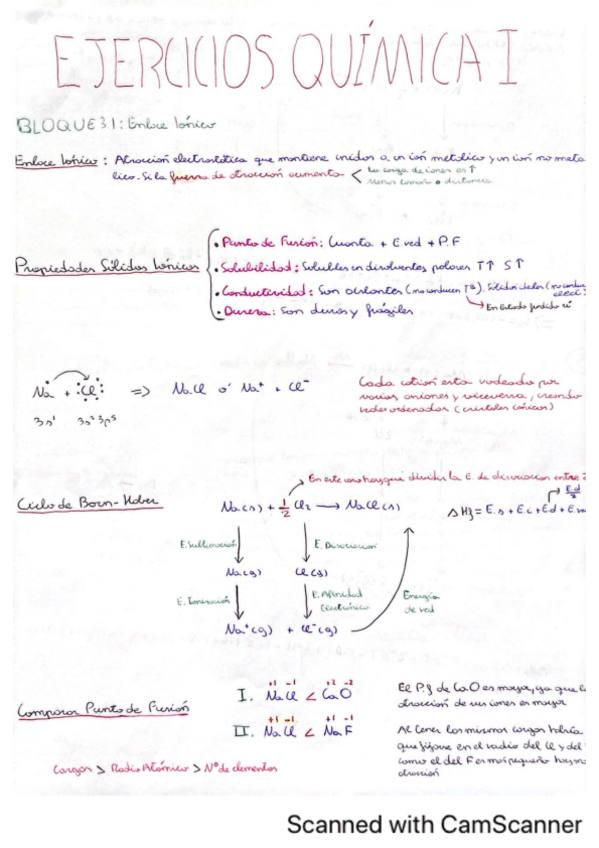 EJERCICIOS QUÍMICA I
BLOQUE 3.1: Enlace Iónico
Enlace Iónico: Atracción electrostática que mantiene unidos a un ión metálico y un ión no meta
lico. Si la fuerza de atracción aumenta < La carga de iones es ↑
Menor tamaño o distancia
Propiedades Sólidos Iónicos
• Punto de Fusión: Cuanta + E red + P.F
• Solubilidad: Solubles en disolventes polares T↑ S↑
• Conductividad: Son aislantes (no conducen Tª). Sólidos
En Estado fundido sí
• Dureza: Son duros y frágiles
Na + Cl => NaCl o' Na⁺ + Cl⁻
3s¹ 3s² 3p⁵
Cada catión esta rodeado por
varios aniones y viceversa, creando
redes ordenadas (cristales iónicos)
En este caso hay que dividir la E. de disociación entre 2
Ciclo de Born-Haber
Na(s) + 1/2 Cl₂ → NaCl(s)
Ed/2
ΔHf = E.s + E.i + Ed + E.
E. Sublimación
E. Disociación
Na(g) Cl(g)
E. Ionización
E. Afinidad
Electrónica
Energía
de red
Na⁺(g) + Cl⁻(g)
Comparar Punto de Fusión
+1 -1 +2 -2
I. NaCl < CaO
El P.f de CaO es mayor, ya que l
atracción de sus iones es mayor
+1 -1 +1 -1
II. NaCl < NaF
Al tener las mismas cargas habría
que fijarse en el radio del Cl y del
como el del F es más pequeño hay
atracción
Cargas > Radio Atómico > Nº de elementos
Scanned with CamScanner